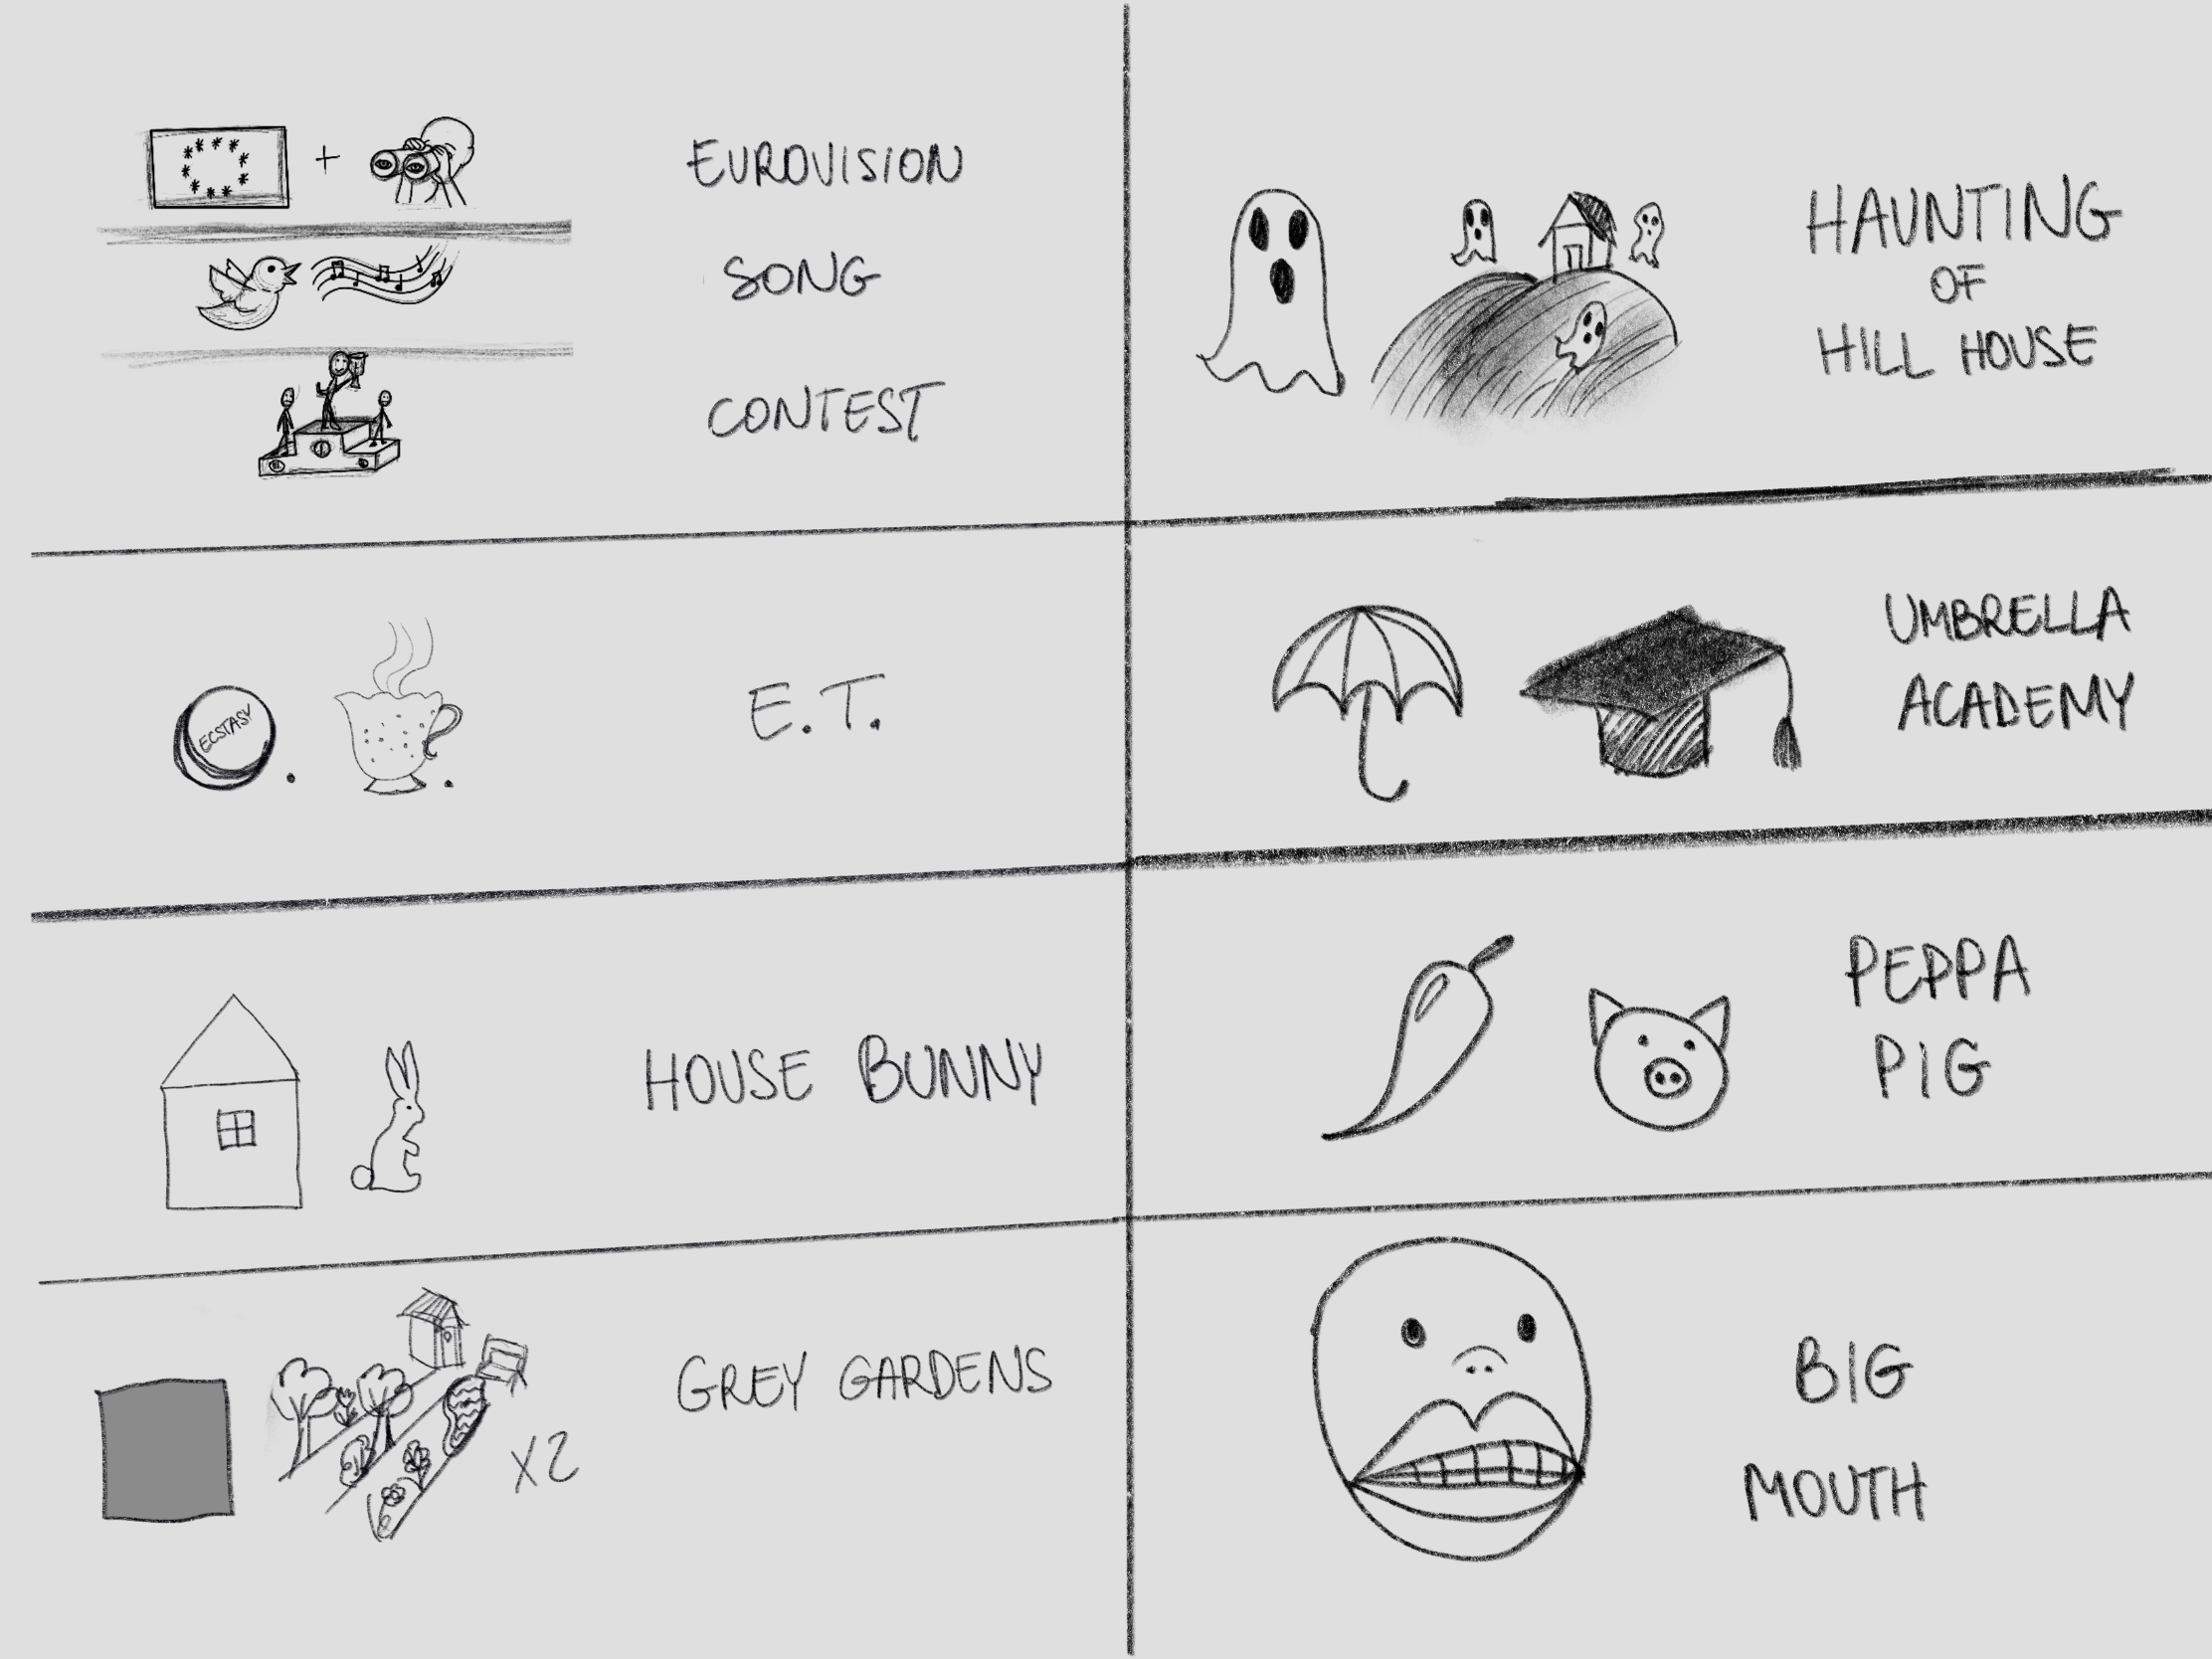 +
EUROVISION
SONG
CONTEST
HAUNTING
OF
HILL HOUSE
ECSTASY
E.T.
UMBRELLA
ACADEMY
HOUSE BUNNY
PEPPA
PIG
X2
GREY GARDENS
BIG
MOUTH